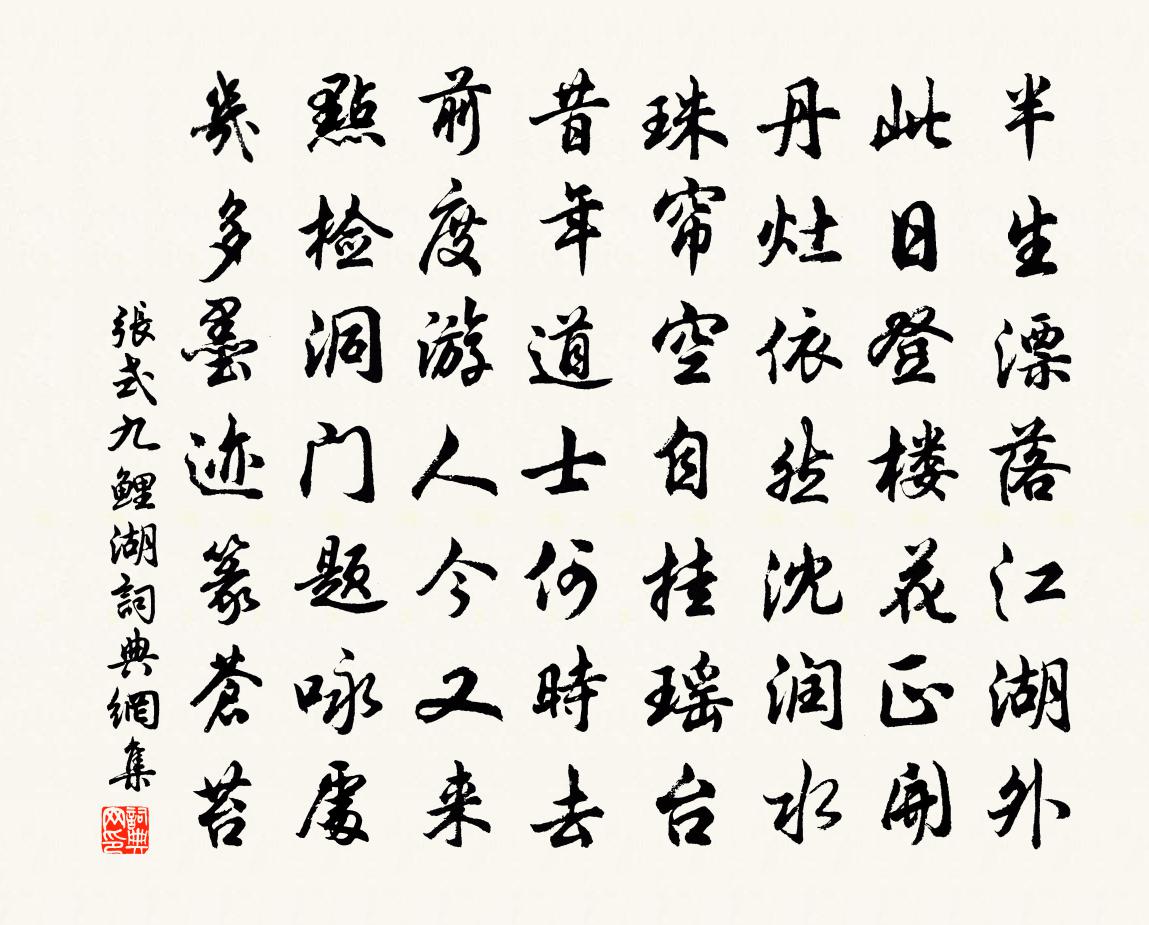 半生漂落江湖外
此日登楼花正開
丹灶依然沈润水
珠帘空自挂瑶台
昔年道士何時去
前度游人今又来
點检洞门题咏處
幾多墨迹篆蒼苔
張式九鯉湖詞典網集
詞典网印